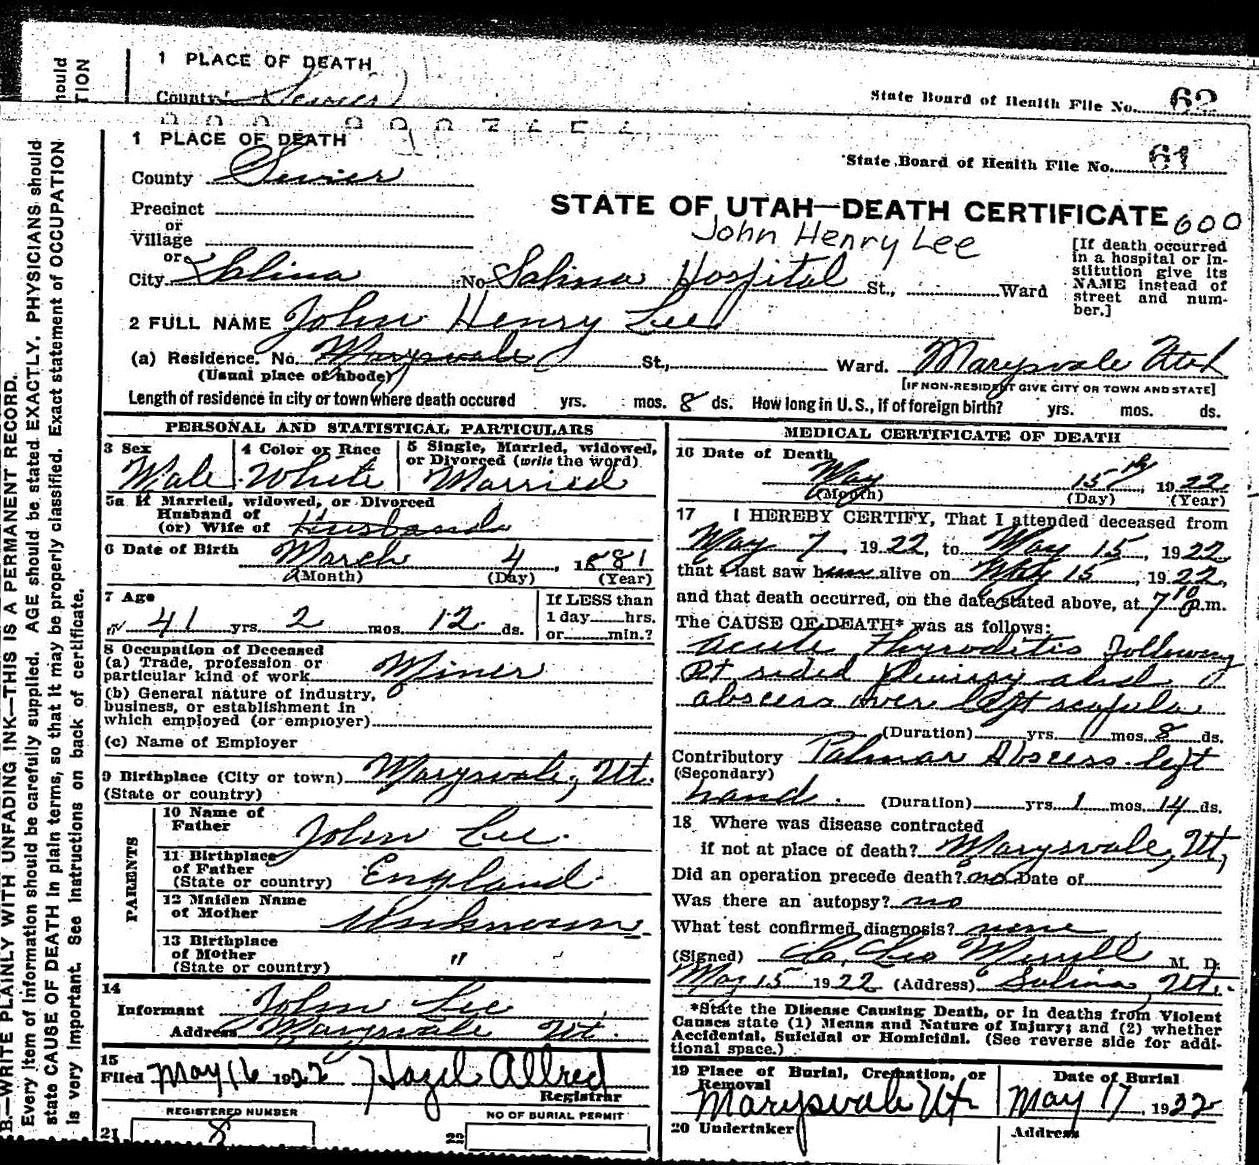 1 PLACE OF DEATH
County Sevier
State Board of Health File No. 62
ould
TION
1 PLACE OF DEATH
State Board of Health File No. 61
County Sevier
Precinct
or
Village
or
City Salina No. Salina Hospital St., Ward
STATE OF UTAH—DEATH CERTIFICATE 600
John Henry Lee
[If death occurred
in a hospital or in-
stitution give its
NAME instead of
street and num-
ber.]
2 FULL NAME John Henry Lee
(a) Residence. No. Marysvale St., Ward. Marysvale Utah
(Usual place of abode)
[IF NON-RESIDENT GIVE CITY OR TOWN AND STATE]
Length of residence in city or town where death occured yrs. mos. 8 ds. How long in U.S., if of foreign birth? yrs. mos. ds.
PERSONAL AND STATISTICAL PARTICULARS
3 Sex
Male
4 Color or Race
White
5 Single, Married, widowed,
or Divorced (write the word)
Married
5a If Married, widowed, or Divorced
Husband of
(or) Wife of Husband
6 Date of Birth March 4, 1881
(Month) (Day) (Year)
7 Age
41 yrs. 2 mos. 12 ds.
If LESS than
1 day hrs.
or min.?
8 Occupation of Deceased
(a) Trade, profession or
particular kind of work Miner
(b) General nature of industry,
business, or establishment in
which employed (or employer)
(c) Name of Employer
9 Birthplace (City or town) Marysvale, Ut.
(State or country)
PARENTS
10 Name of
Father John Lee
11 Birthplace
of Father
(State or country) England
12 Maiden Name
of Mother Unknown
13 Birthplace
of Mother
(State or country) "
14
Informant John Lee
Address Marysvale Ut.
15
Filed May 16 1922 Hazel Allred
Registrar
REGISTERED NUMBER
21 8
NO OF BURIAL PERMIT
22
MEDICAL CERTIFICATE OF DEATH
16 Date of Death
May 15th, 1922
(Month) (Day) (Year)
17 I HEREBY CERTIFY, That I attended deceased from
May 7, 1922, to May 15, 1922
that I last saw him alive on May 15, 1922,
and that death occurred, on the date stated above, at 7 10 p.m.
The CAUSE OF DEATH* was as follows:
acute Thyroditis following
Rt sided Pleurisy and
abscess over left scapula
(Duration) yrs. mos. 8 ds.
Contributory Palmar Abscess left
(Secondary)
hand. (Duration) yrs. 1 mos. 14 ds.
18 Where was disease contracted
if not at place of death? Marysvale, Ut,
Did an operation precede death? no Date of
Was there an autopsy? no
What test confirmed diagnosis? none
(Signed) Leo Merrill M. D.
May 15 1922 (Address) Salina, Ut.
*State the Disease Causing Death, or in deaths from Violent
Causes state (1) Means and Nature of Injury; and (2) whether
Accidental, Suicidal or Homicidal. (See reverse side for addi-
tional space.)
19 Place of Burial, Cremation, or
Removal
Marysvale Ut
Date of Burial
May 17, 1922
20 Undertaker
Address
B.—WRITE PLAINLY WITH UNFADING INK—THIS IS A PERMANENT RECORD.
Every item of information should be carefully supplied. AGE should be stated EXACTLY. PHYSICIANS should
state CAUSE OF DEATH in plain terms, so that it may be properly classified. Exact statement of OCCUPATION
is very important. See instructions on back of certificate.